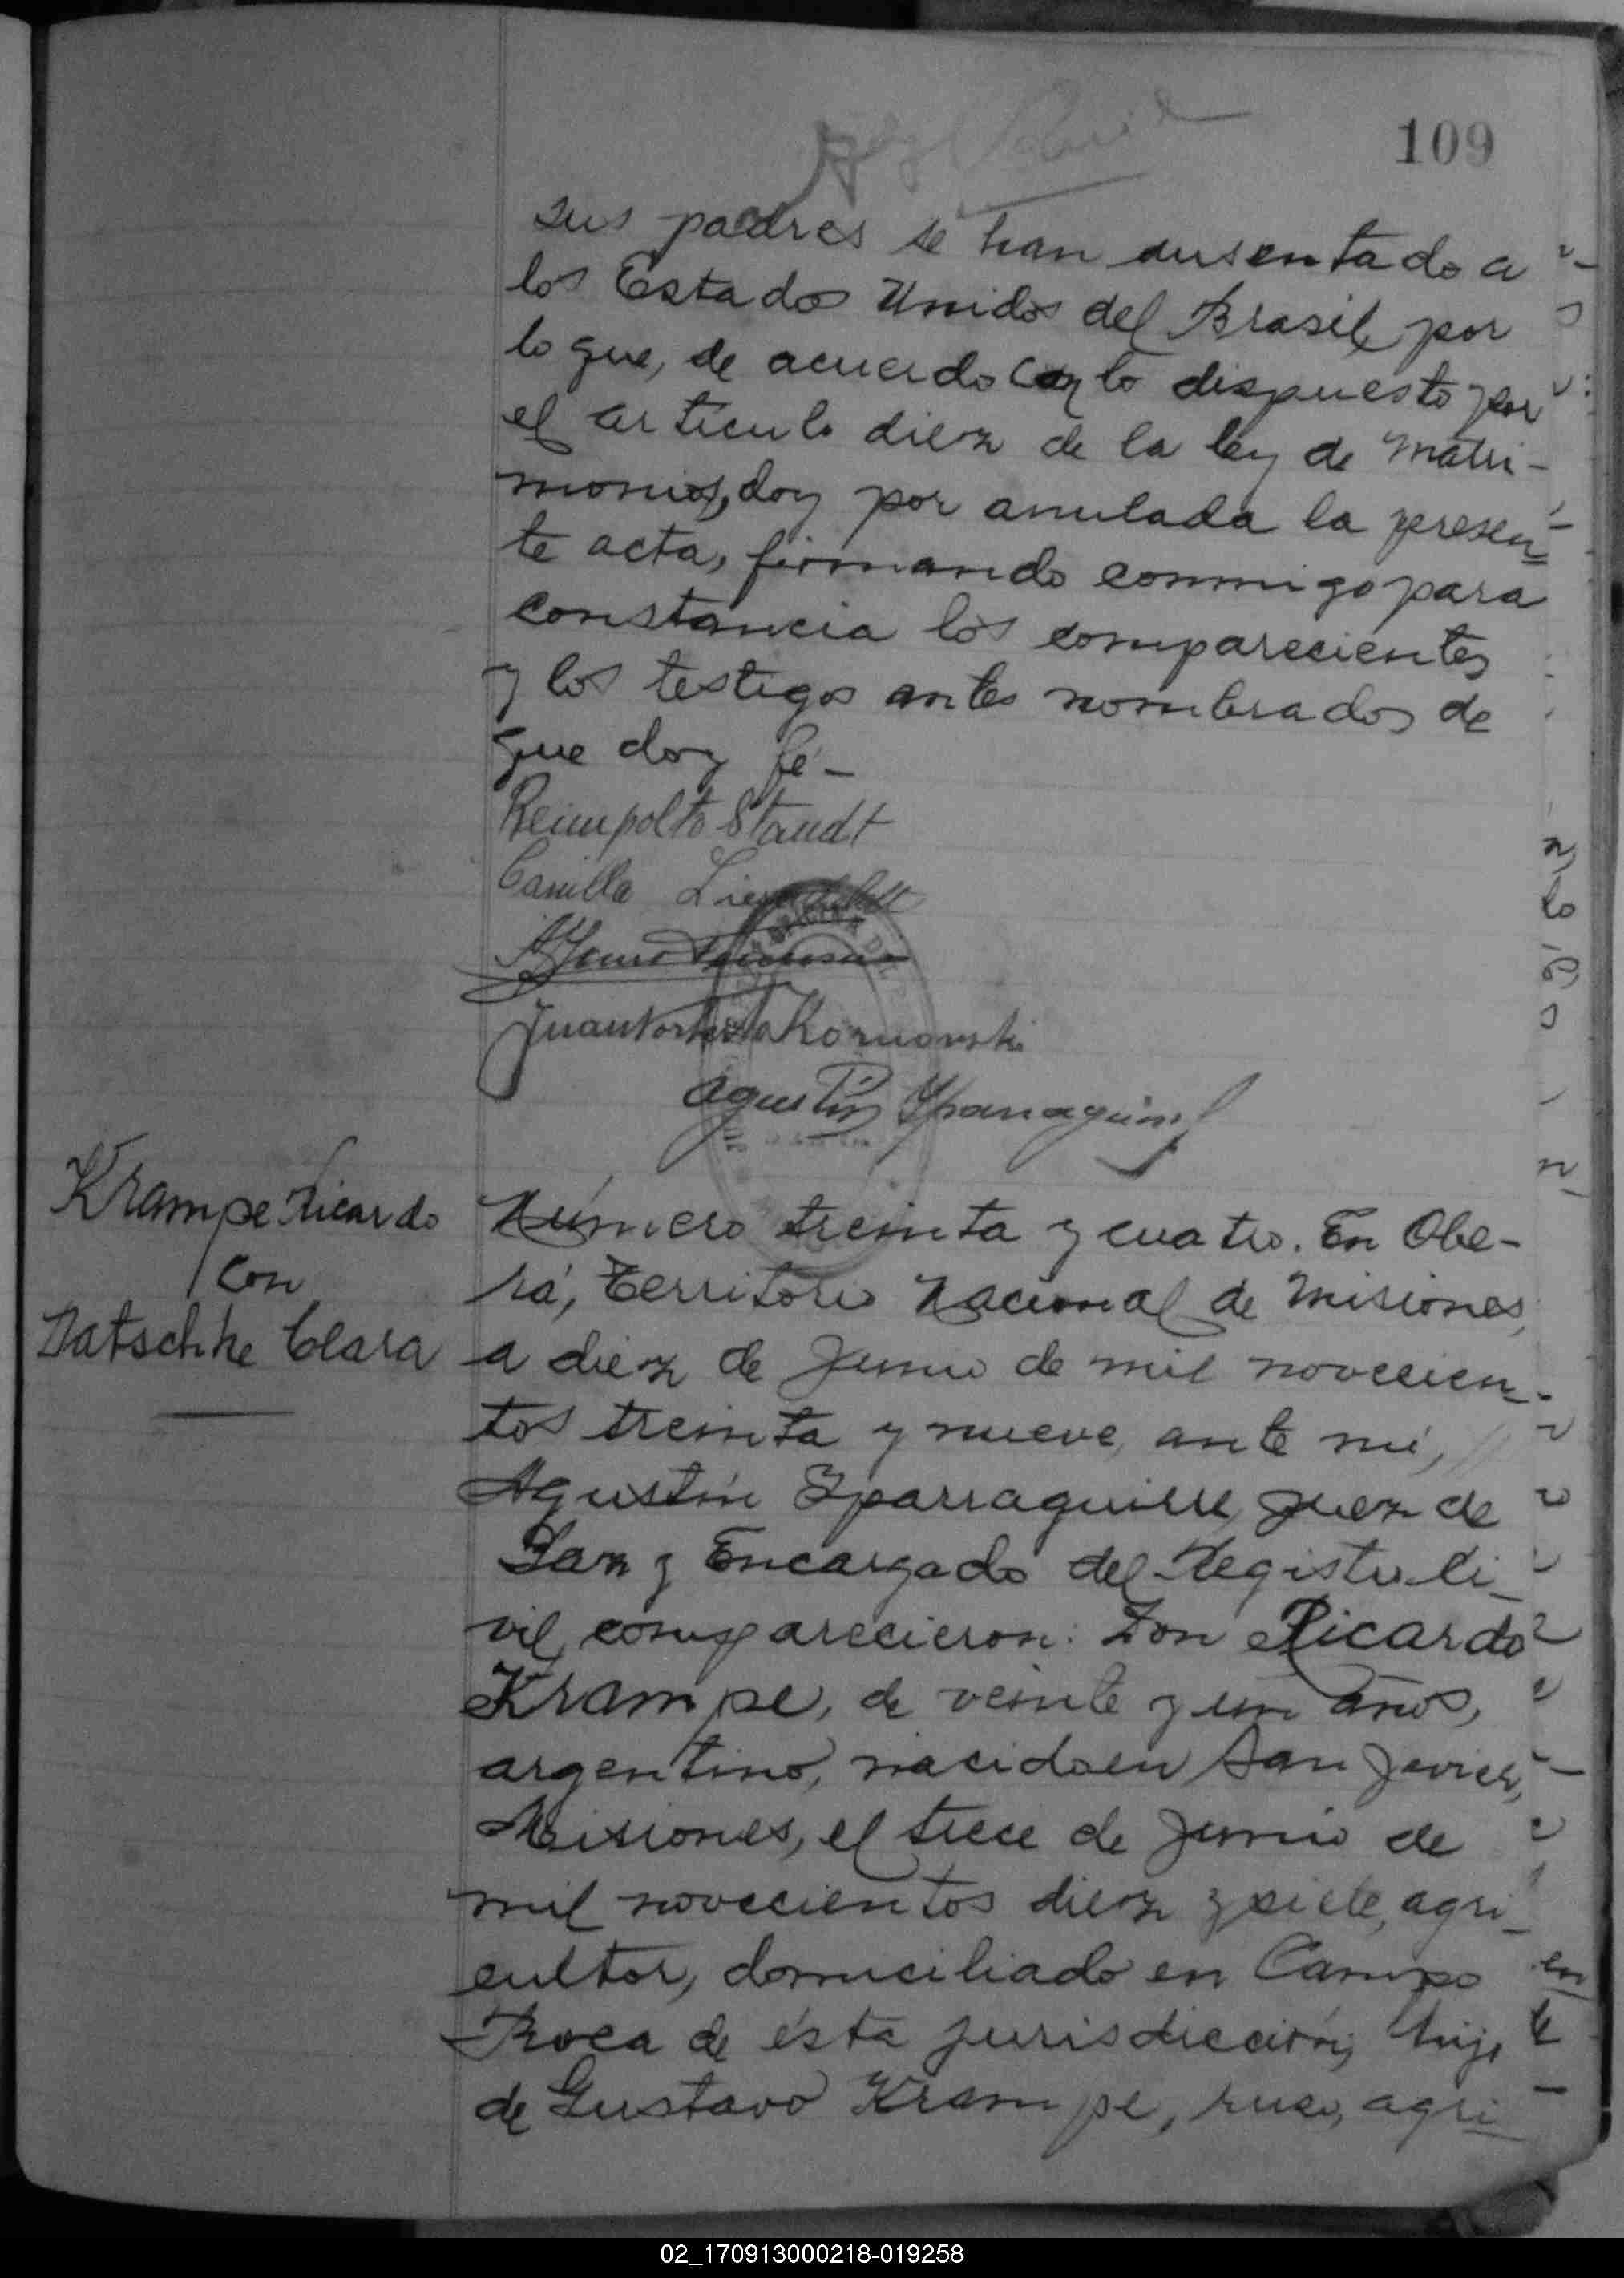 109
sus padres se han ausentado a
los Estados Unidos del Brasil, por
lo que, de acuerdo con lo dispuesto por
el artículo diez de la ley de Matri-
monios, doy por anulada la presen-
te acta, firmando conmigo para
constancia los comparecientes
y los testigos antes nombrados de
que doy fé -
Reimpolto Staudt
Camilla
Juan Kornowski
Agustín Yparraguirre
Krampe Ricardo
con
Datschke Clara
Número treinta y cuatro. En Obe-
rá, Territorio Nacional de Misiones,
a diez de Junio de mil novecien-
tos treinta y nueve, ante mí,
Agustín Yparraguirre, Juez de
Paz y Encargado del Registro Ci-
vil, comparecieron: Don Ricardo
Krampe, de veinte y un años,
argentino, nacido en San Javier,
Misiones, el trece de Junio de
mil novecientos diez y siete, agri-
cultor, domiciliado en Campo
Roca de ésta jurisdicción, hijo
de Gustavo Krampe, ruso, agri-
02_170913000218-019258